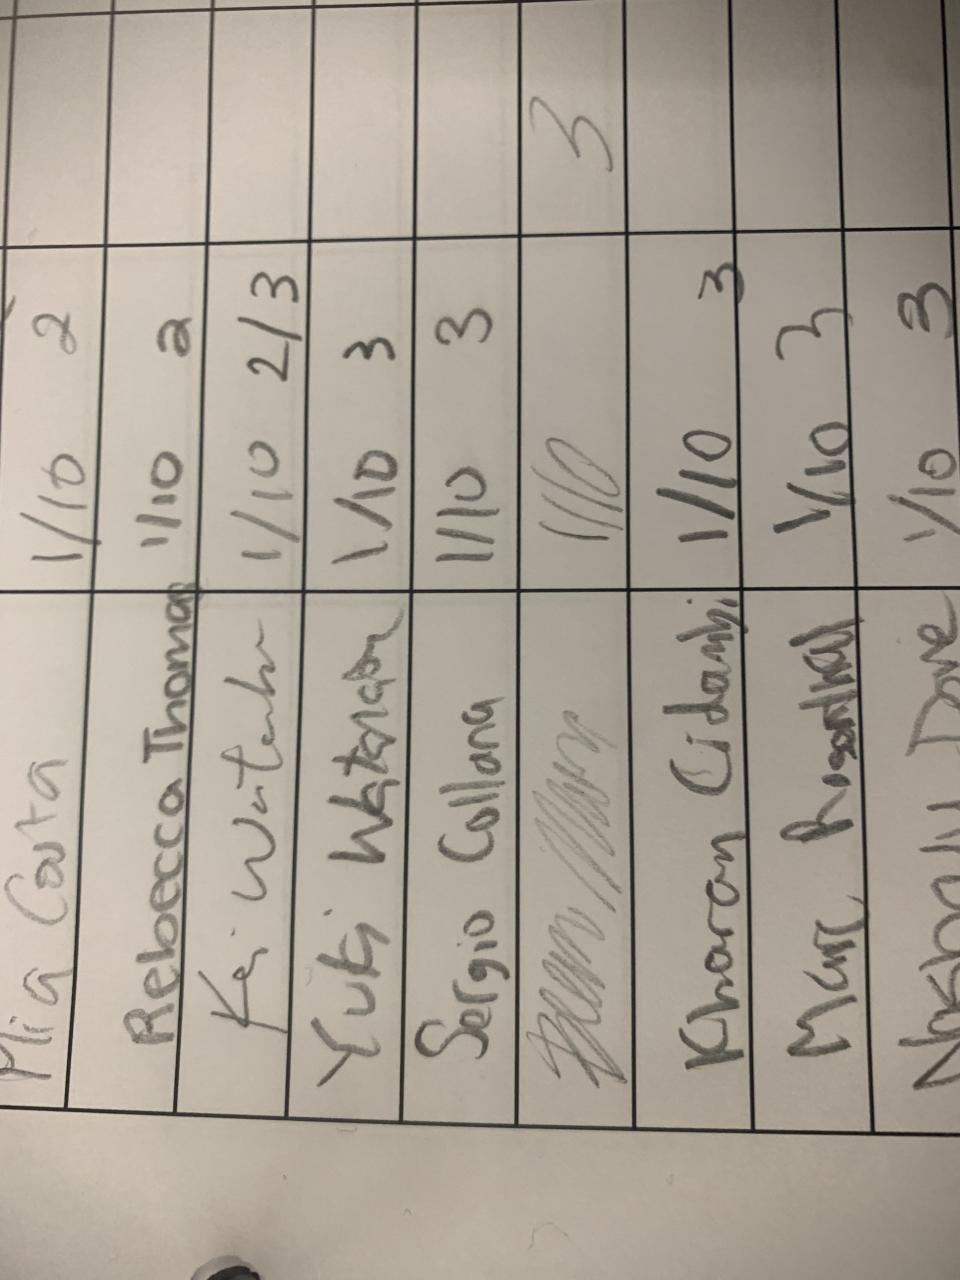 Mia Costa 1/10 2
Rebecca Thomas 1/10 2
Kei 1/10 2/3
Yuki Watanabe 1/10 3
Sergio Collana 1/10 3
1/10 3
Kharan Cidambi 1/10 3
Marc Rosenthal 1/10 3
1/10 3